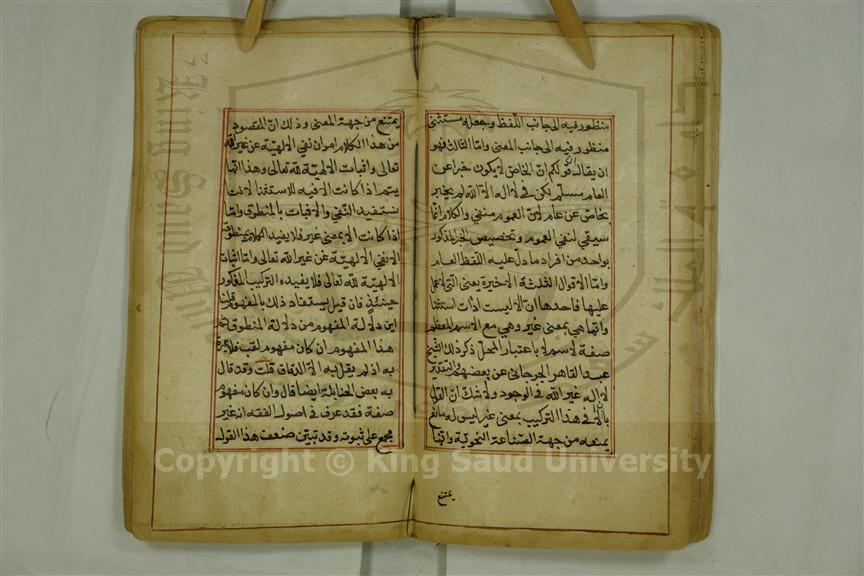 منظور فيه الى جانب اللفظ وجعله مستثنى
منظور فيه الى جانب المعنى وامّا الثالث فهو
ان يقال قولكم انّ الخاص لا يكون خبرا عن
العام مسلّم لكن في لا اله الا الله لم يخبر
بخاص عن عام لان العموم منفي والكلام انّما
سيق لنفي العموم وتخصيص الخبر المذكور
بواحد من افراد ما دلّ عليه اللفظ العام
وامّا الاقوال الثلثة الاخيرة يعني التي لا عمل
عليها فاحدها انّ الا ليست اداة استثنا
وانّما هي بمعنى غير وهي مع الاسم المعظم
صفة لاسم لا باعتبار المحلّ ذكر ذلك الشيخ
عبد القاهر الجرجاني عن بعضهم والتقدير
لا اله غير الله في الوجود ولا شكّ انّ القول
بالّا في هذا التركيب بمعنى غير ليس له مانع
يمنعه من جهة الصّناعة النحوية وانّما
يمتنع
يمتنع من جهة المعنى وذلك انّ المقصود
من هذا الكلام امران نفي الالهيّة عن غير الله
تعالى واثبات الالهيّة لله تعالى وهذا انّما
يتم اذا كانت الا فيه للاستثنا لانّا
نستفيد النّفي والاثبات بالمنطوق وامّا
اذا كانت الا بمعنى غير فلا يفيد الكلام بمنطوقه
الا نفي الالهيّة عن غير الله تعالى وامّا اثبات
الالهيّة لله تعالى فلا يفيده التركيب المذكور
حينئذ فان قيل يستفاد ذلك بالمفهوم قلنا
اين دلالة المفهوم من دلالة المنطوق ثم
هذا المفهوم ان كان مفهوم لقب فلا عبرة
به اذ لم يقل به الا الدقاق قلت وقد قال
به بعض الحنابلة ايضا قال وان كان مفهوم
صفة فقد عرف في اصول الفقه انه غير
مجمع على ثبوته وقد تبيّن ضعف هذا القول
Copyright © King Saud University